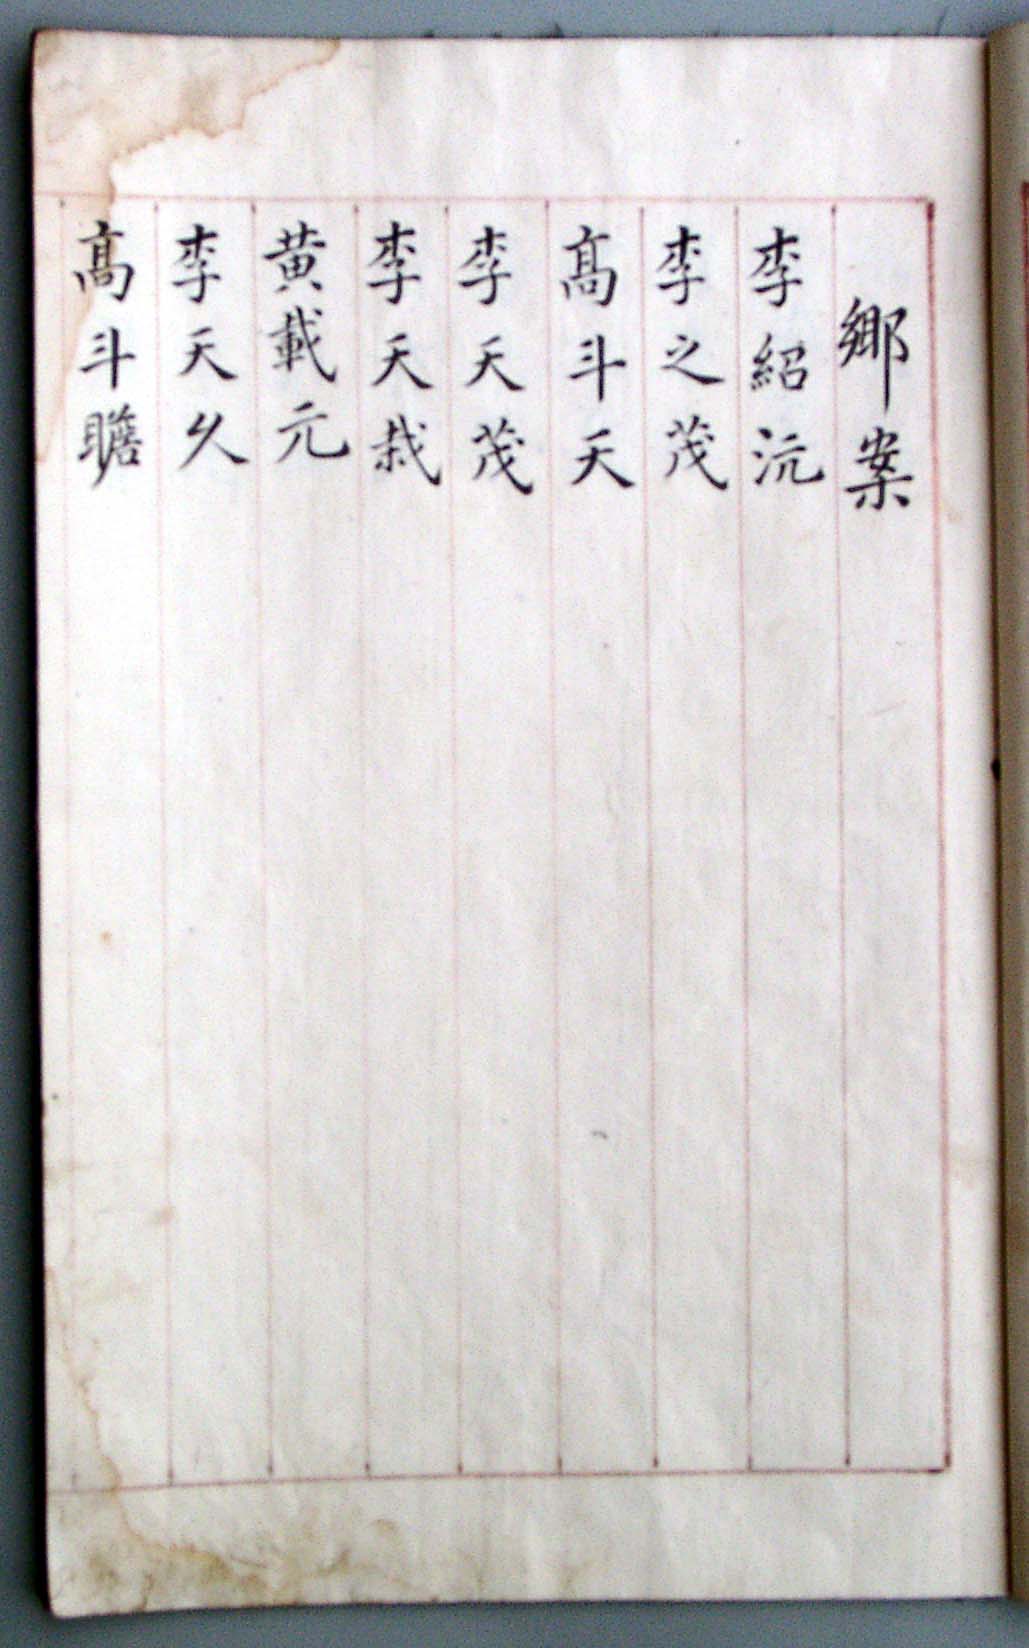 鄉案
李紹沅
李之茂
髙斗天
李天茂
李天栽
黄載元
李天久
髙斗瞻